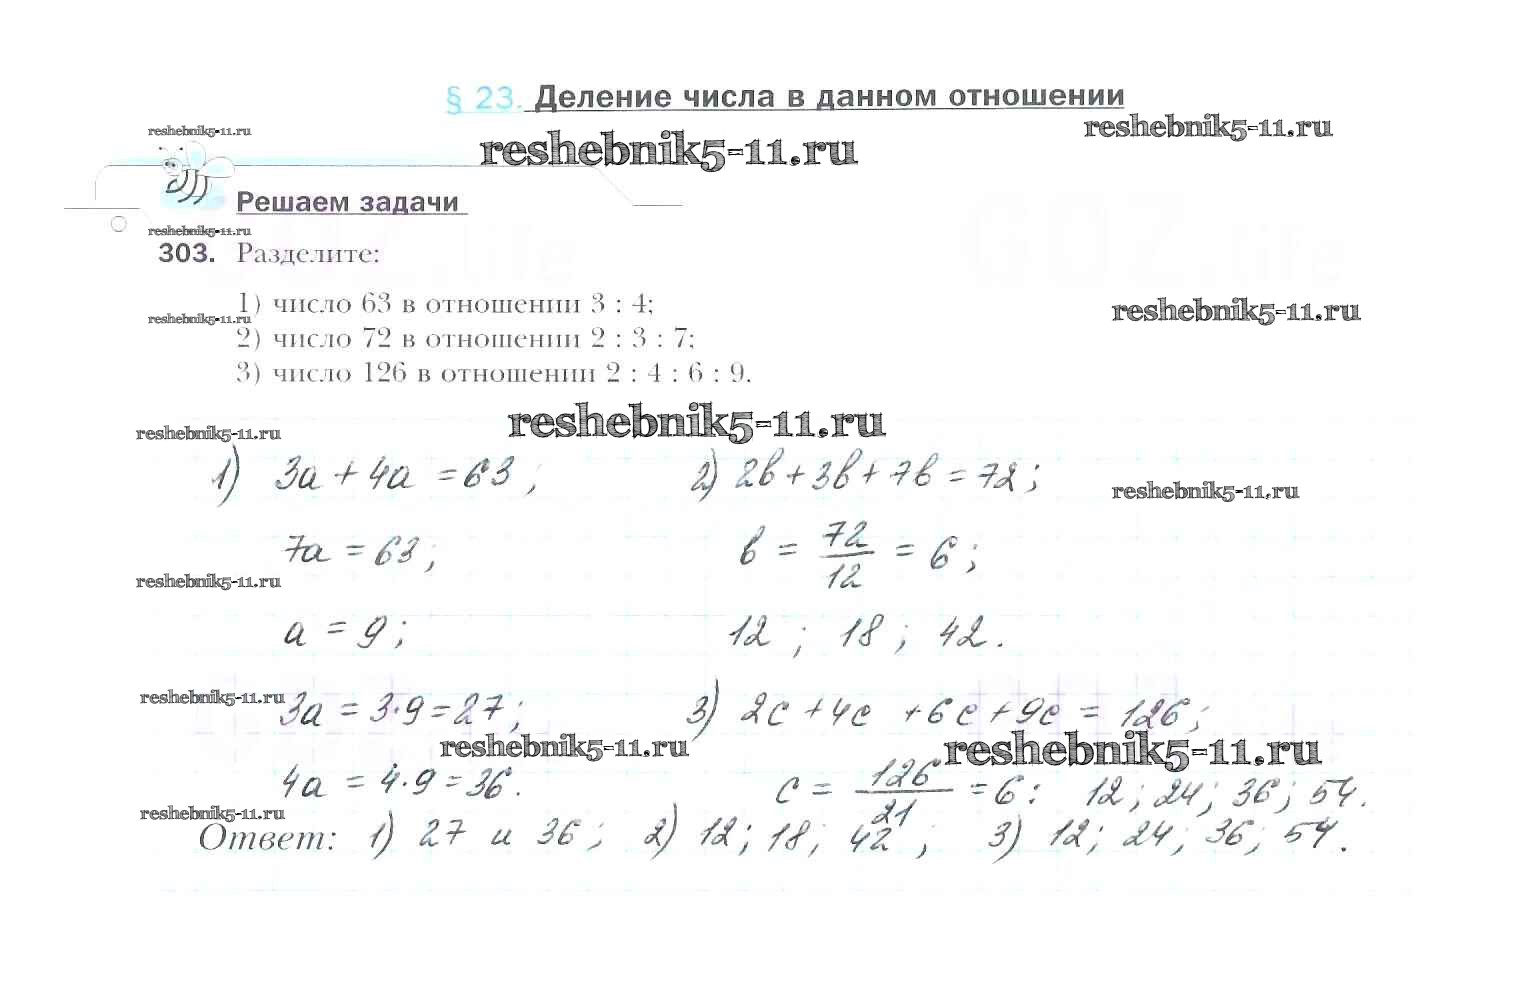 § 23. Деление числа в данном отношении
reshebnik5-11.ru
reshebnik5-11.ru
reshebnik5-11.ru
Решаем задачи
reshebnik5-11.ru
303. Разделите:
GOZ.life
GOZ.life
1) число 63 в отношении 3 : 4;
reshebnik5-11.ru
reshebnik5-11.ru
2) число 72 в отношении 2 : 3 : 7;
3) число 126 в отношении 2 : 4 : 6 : 9.
reshebnik5-11.ru
reshebnik5-11.ru
1) 3a + 4a = 63;
7a = 63;
reshebnik5-11.ru
a = 9;
reshebnik5-11.ru
3a = 3·9 = 27;
reshebnik5-11.ru
4a = 4·9 = 36.
2) 2b + 3b + 7b = 72;
reshebnik5-11.ru
b = 72/12 = 6;
12; 18; 42.
3) 2c + 4c + 6c + 9c = 126;
reshebnik5-11.ru
c = 126/21 = 6: 12; 24; 36; 54.
reshebnik5-11.ru
Ответ: 1) 27 и 36; 2) 12; 18; 42; 3) 12; 24; 36; 54.